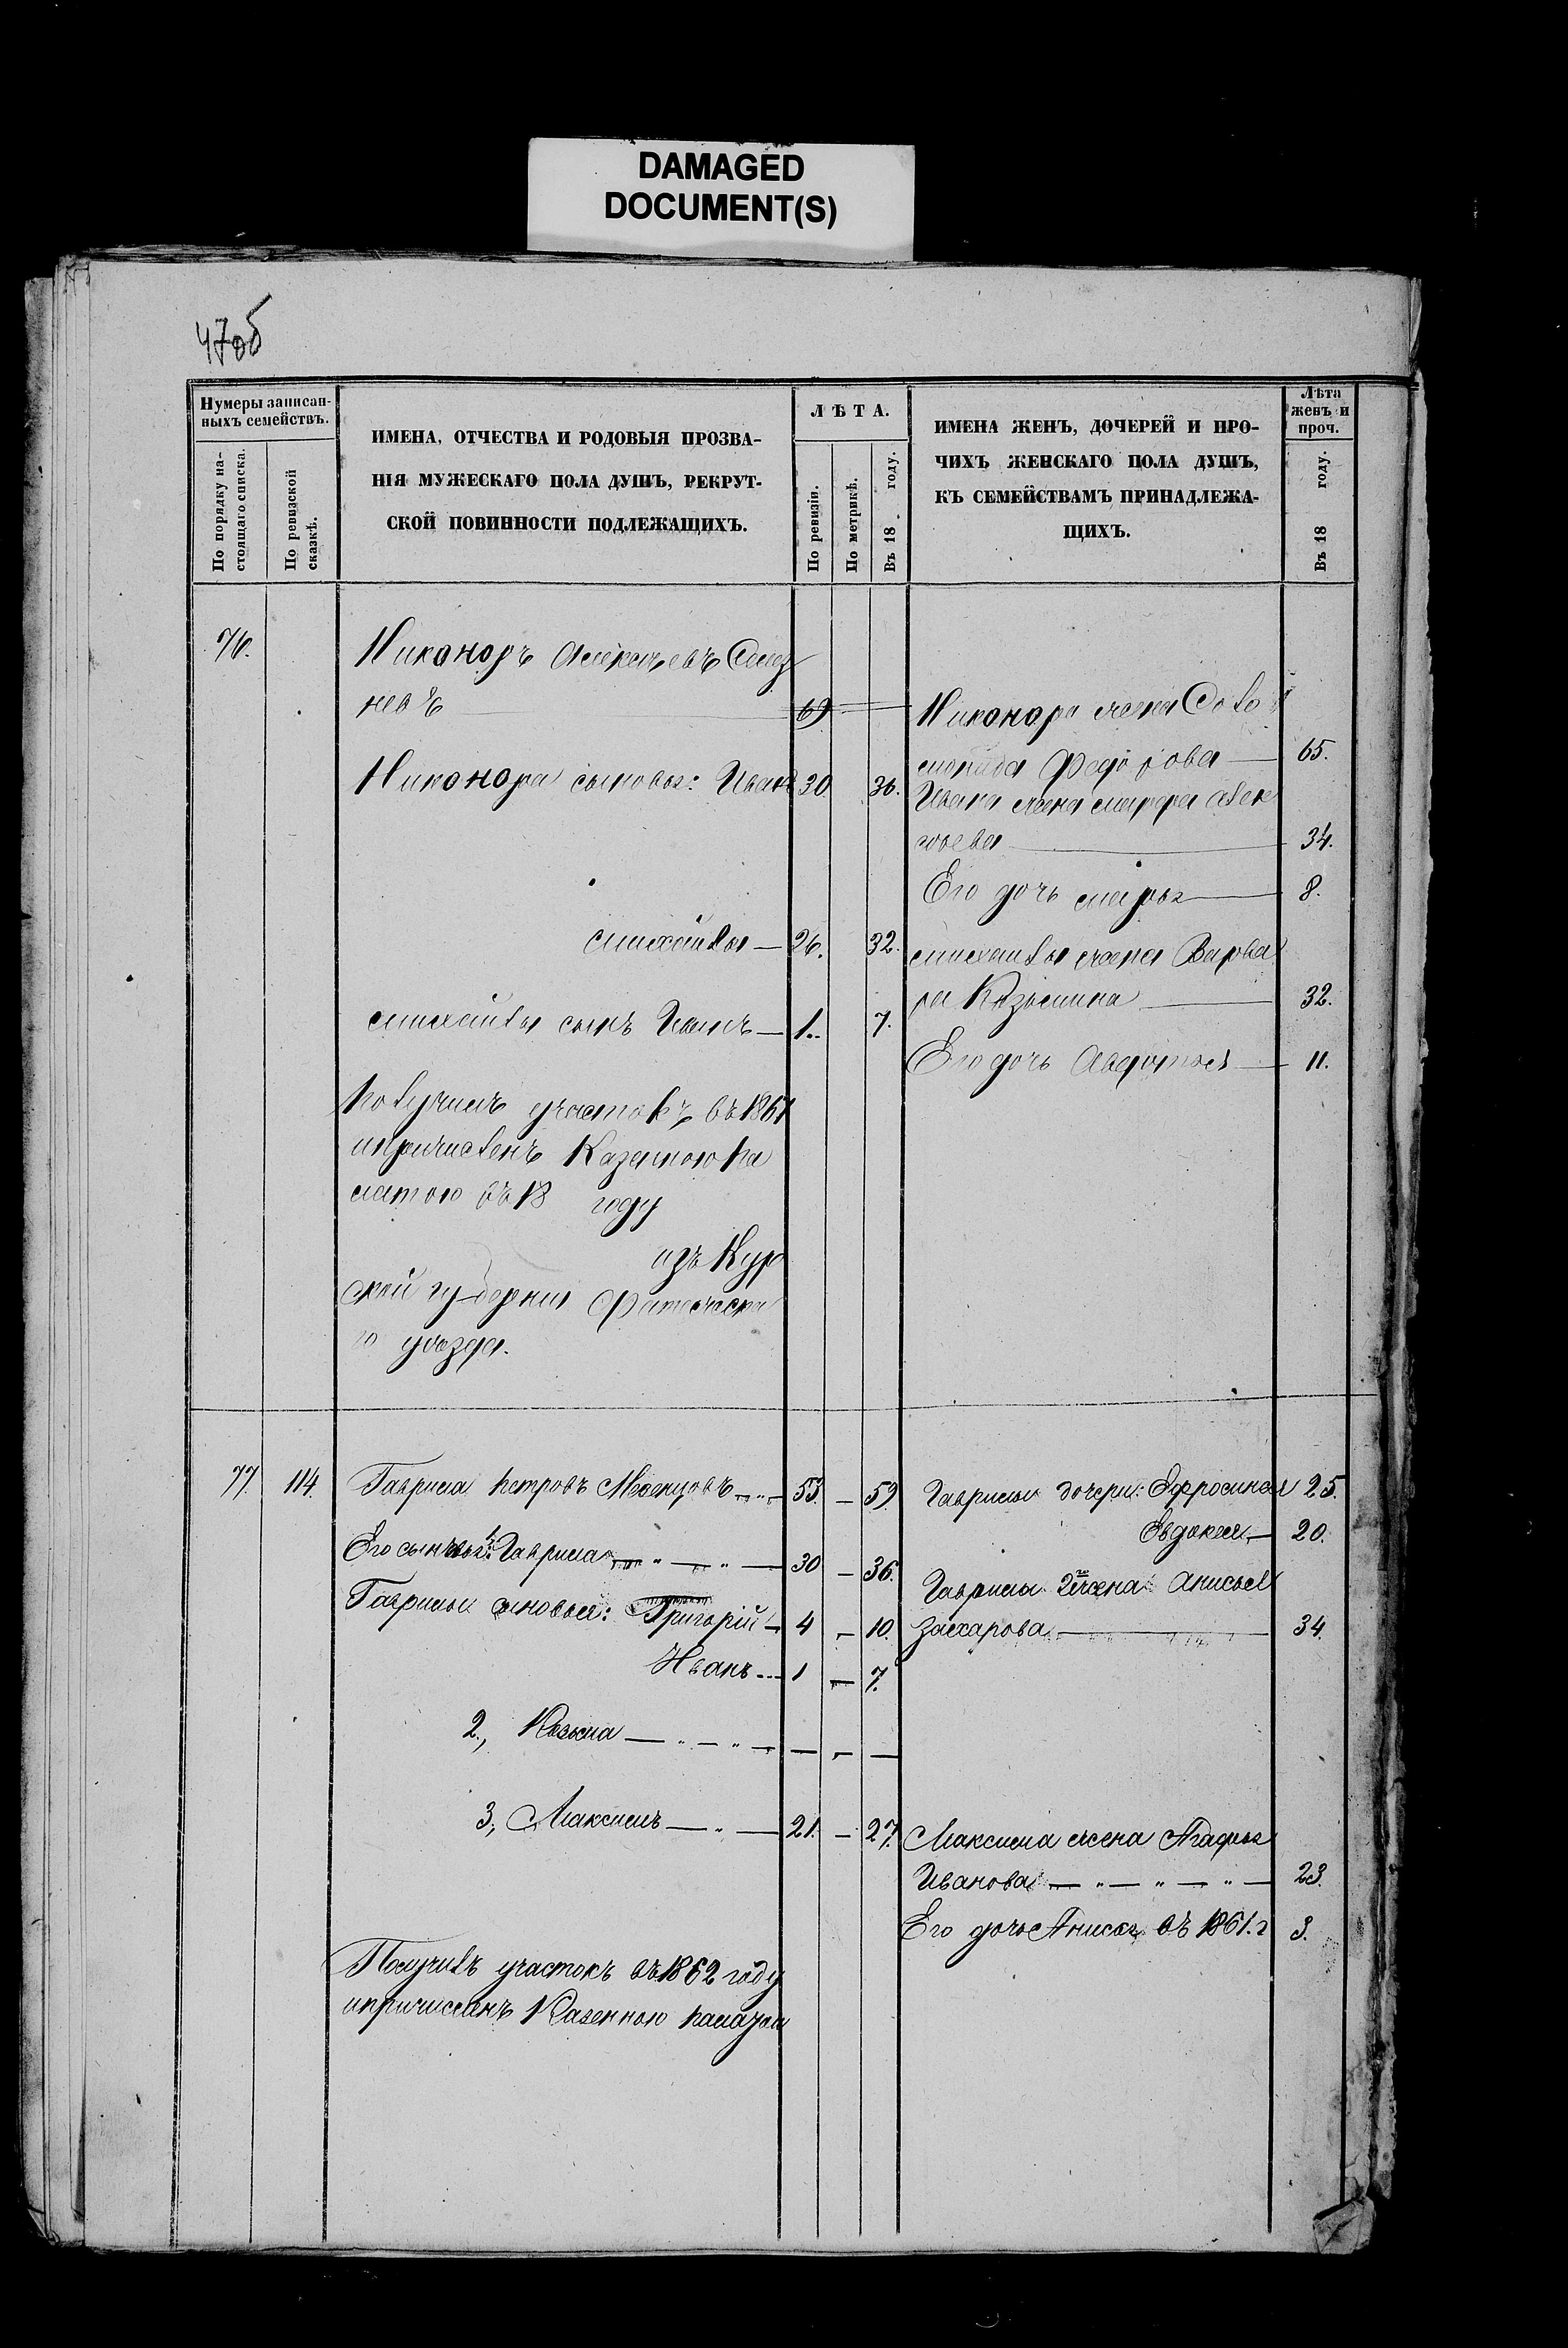 DAMAGED
DOCUMENT(S)
47об
Нумеры записан-
ныхъ семействъ.
По порядку на-
стоящаго списка.
По ревизской
сказкѣ.
ИМЕНА, ОТЧЕСТВА И РОДОВЫЯ ПРОЗВА-
НІЯ МУЖЕСКАГО ПОЛА ДУШЪ, РЕКРУТ-
СКОЙ ПОВИННОСТИ ПОДЛЕЖАЩИХЪ.
ЛѢТА.
По ревизіи.
По метрикѣ.
Въ 18 году.
ИМЕНА ЖЕНЪ, ДОЧЕРЕЙ И ПРО-
ЧИХЪ ЖЕНСКАГО ПОЛА ДУШЪ,
КЪ СЕМЕЙСТВАМЪ ПРИНАДЛЕЖА-
ЩИХЪ.
Лѣта
женъ и
проч.
Въ 18 году.
76.
Никоноръ
невъ 69
Никонора жена Соло
монида Федорова 65.
Никонора сыновья: Иванъ 30 36.
Ивана жена
34.
Его дочь Марья 8.
Михайла 26. 32.
Михайлы жена Варва
ра Козьмина 32.
Михайлы сынъ 1 7.
Его дочь Авдотья 11.
Получилъ участокъ въ 1861
и причисленъ Казенною Па
латою въ 18 году
изъ Кур
ской губерніи Фатежска
го уѣзда.
77. 114. Гаврила Петровъ 53. 59
Гаврилы дочери: Ефросинья 25.
Евдокея 20.
Его сыновья: 1. Гаврила 30 36.
Гаврилы 2я жена Анисья
Захарова 34.
Гаврилы сыновья: Григорій 4 10.
Иванъ 1 7.
2., Козьма
3., Максимъ 21. 27.
Максима жена Агафья
Иванова 23.
Его дочь Анисья въ 1861. г 3.
Получилъ участокъ въ 1862 году
и причисленъ Казенною палатою